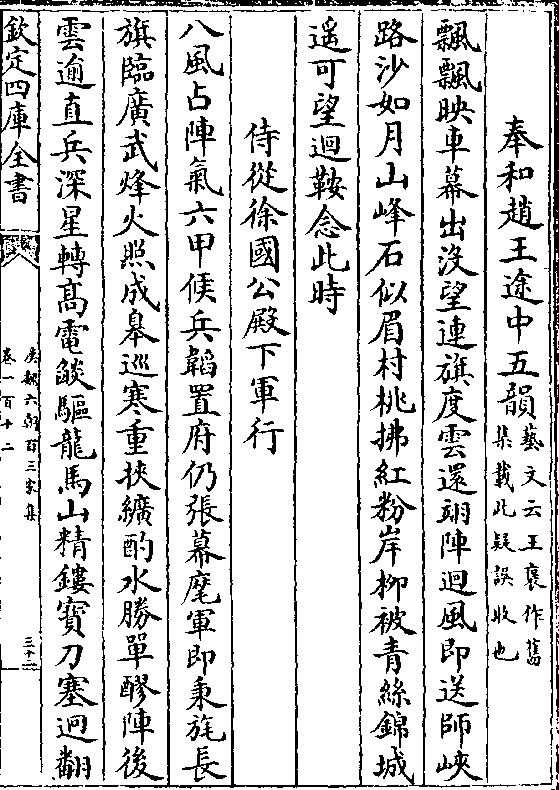 奉和趙王途中五韻藝文云王襃作舊
集載此疑誤收也
飄飄映車幕出沒望連旗度雲還翊陣迴風即送師峽
路沙如月山峰石似眉村桃拂紅粉岸柳被青絲錦城
遥可望迴鞍念此時
侍從徐國公殿下軍行
八風占陣氣六甲候兵韜置府仍張幕麾軍即秉旄長
旗臨廣武烽火照成臯巡寒重挾纊酌水勝單醪陣後
雲逾直兵深星轉高電燄驅龍馬山精鏤寳刀塞迥翻
欽定四庫全書
漢魏六朝百三家集
卷一百十二
三十二